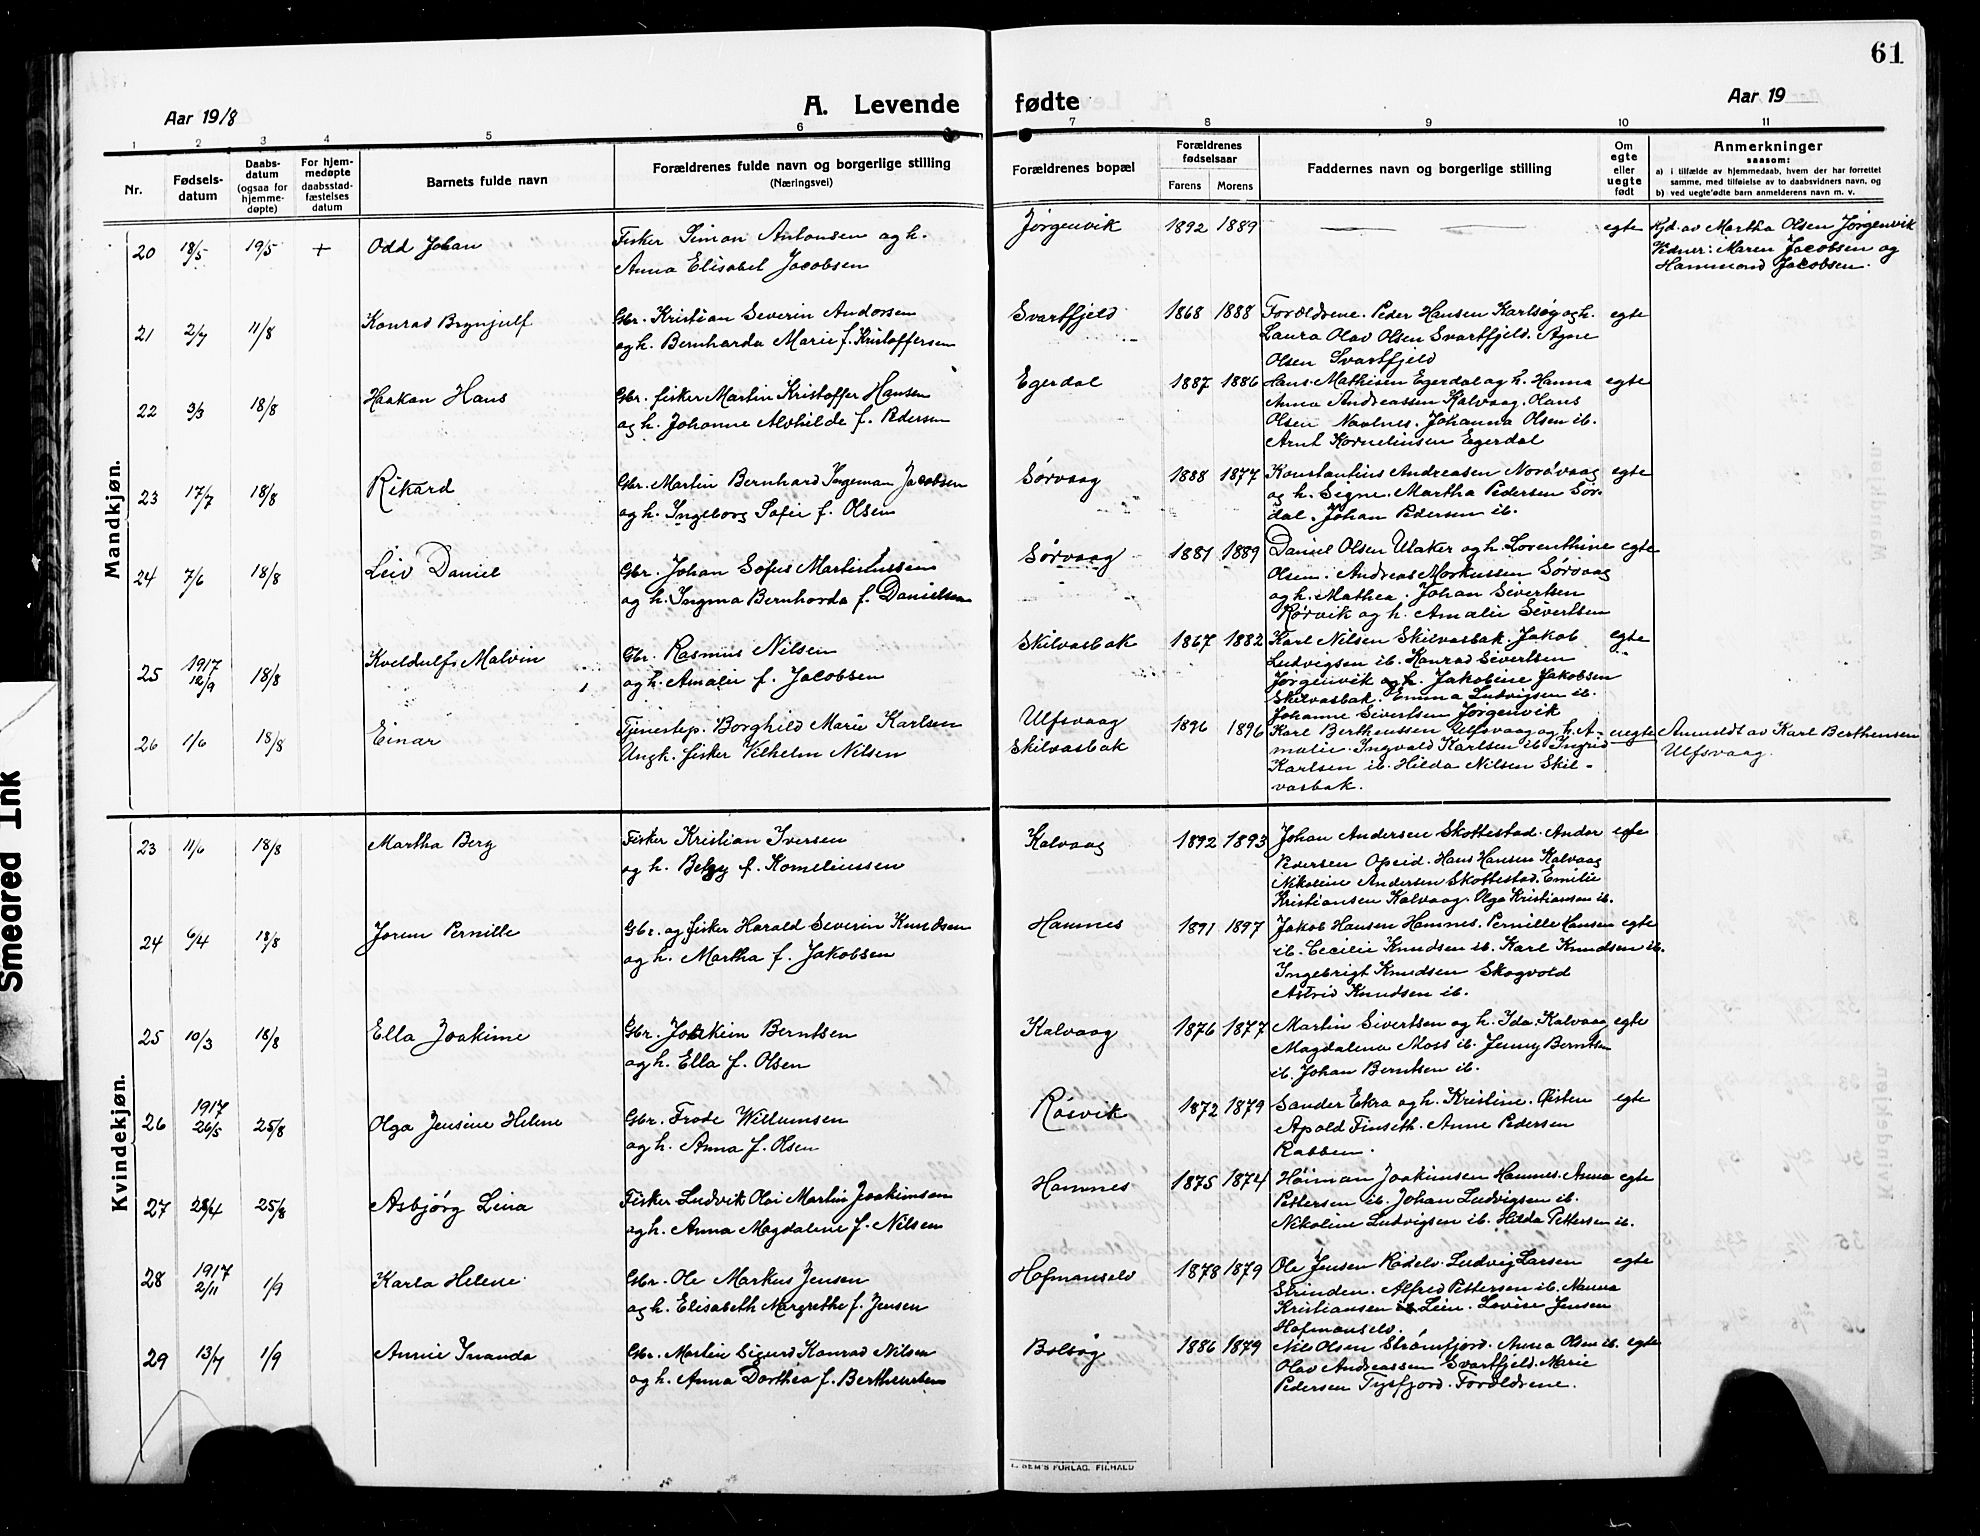 61
A. Levende fødte
Aar 1918
Aar 19
1 2 3 4 5 6 7 8 9 10 11
Nr.
Fødsels-
datum
Daabs-
datum
(ogsaa for
hjemme-
døpte)
For hjem-
medøpte
daabsstad-
fæstelses
datum
Barnets fulde navn
Forældrenes fulde navn og borgerlige stilling
(Næringsvei)
Forældrenes bopæl
Forældrenes
fødselsaar
Farens Morens
Faddernes navn og borgerlige stilling
Om
egte
eller
uegte
født
Anmerkninger
saasom:
a) i tilfælde av hjemmedaab, hvem der har forrettet
samme, med tilføielse av to daabsvidners navn, og
b) ved uegtefødte barn anmelderens navn m. v.
Mandkjøn.
20 18/5 19/5 + Odd Johan
Fisker Simon Antonsen og h.
Anna Elisabet Jacobsen
Jørgenvik 1892 1889 — — egte
Hjd. av Martha Olsen Jørgenvik
Vidner: Maren Jacobsen og
Hammond Jacobsen.
21 2/7 11/8 Konrad Brynjulf
Gbr. Kristian Severin Andorsen
og h. Bernharda Marie f. Kristoffersen
Svartfjeld 1868 1888
Forældrene. Peder Hansen Karlsøy og h.
Laura Olav Olsen Svartfjeld. Agne
Olsen Svartfjeld
egte
22 3/3 18/8 Haakan Hans
Gbr. fisker Martin Kristoffer Hansen
og h. Johanne Alvhilde f. Pedersen
Egerdal 1887 1886
Hans Mathisen Egerdal og h. Hanna
Anna Andreassen Kalvaag. Hans
Olsen Navlnes. Johanna Olsen ib.
Arnt Kornelinsen Egerdal
egte
23 17/7 18/8 Rikard
Gbr. Martin Bernhard Ingeman Jacobsen
og h. Ingeborg Sofie f. Olsen
Sørvaag 1888 1877
Konstantins Andreasen Nordvaag
og h. Signe. Martha Pedersen Sør-
dal. Johan Pedersen ib.
egte
24 7/6 18/8 Leiv Daniel
Gbr. Johan Sofus Martinussen
og h. Ingma Bernharda f. Danielsen
Sørvaag 1881 1889
Daniel Olsen Ulaker og h. Lorenthine
Olsen. Andreas Markussen Sørvaag
og h. Mathea. Johan Sivertsen
Rørvik og h. Amalie Sivertsen
egte
25 1917 12/9 18/8 Kveldulfs Malvin
Gbr. Rasmus Nilsen
og h. Amalie f. Jacobsen
Skilvasbak 1867 1882
Karl Nilsen Skilvasbak. Jakob
Ludvigsen ib. Konrad Sivertsen
Jørgenvik og h. Jakobine Jakobsen
Skilvasbak. Emma Ludvigsen ib.
Johanne Sivertsen Jørgenvik
egte
26 1/6 18/8 Einar
Tjenestep. Borghild Marie Karlsen
Ungk. fisker Vilhelm Nilsen
Ulfsvaag
Skilvasbak
1896 1896
Karl Berthenssen Ulfsvaag og h. A-
malie. Ingvald Karlsen ib. Ingrid
Karlsen ib. Hilda Nilsen Skil-
vasbak.
uegte
Anmeldt av Karl Berthensen
Ulfsvaag.
Kvindekjøn.
23 11/6 18/8 Martha Berg
Fisker Kristian Iversen
og h. Betzy f. Korneliussen
Kalvaag 1892 1893
Johan Andersen Skottestad. Andor
Pedersen Opeid. Hans Hansen Kalvaag
Nikoline Andersen Skottestad. Emilie
Kristiansen Kalvaag. Olga Kristiansen ib.
egte
24 6/4 18/8 Jorun Pernille
Gbr. og fisker Harald Severin Knudsen
og h. Martha f. Jakobsen
Hamnes 1891 1897
Jakob Hansen Hamnes. Pernille Hansen
ib. Cecilie Knudsen ib. Karl Knudsen ib.
Ingebrigt Knudsen Skogvold
Astrid Knudsen ib.
egte
25 10/3 18/8 Ella Joakime
Gbr. Joakim Berntsen
og h. Ella f. Olsen
Kalvaag 1876 1877
Martin Sivertsen og h. Ida Kalvaag
Magdalena Moss ib. Jenny Berntsen
ib. Johan Berntsen ib.
egte
26 1917 26/5 25/8 Olga Jensine Helene
Gbr. Frode Willumsen
og h. Anna f. Olsen
Røsvik 1872 1879
Sander Ekra og h. Kristine. Øisten
Apold Finseth. Anne Pedersen
Rabben.
egte
27 28/4 25/8 Asbjørg Lina
Fisker Ludvik Olai Martin Joakimsen
og h. Anna Magdalene f. Nilsen
Hamnes 1875 1874
Heiman Joakimsen Hamnes. Anna
Pettersen ib. Johan Ludvigsen ib.
Nikoline Ludvigsen ib. Hilda Pettersen ib.
egte
28 1917 2/11 1/9 Karla Helene
Gbr. Ole Markus Jensen
og h. Elisabeth Margrethe f. Jensen
Hofmanselv 1878 1879
Ole Jensen Rødelv. Ludvig Larsen
Strinden. Alfred Pettersen ib. Nanna
Kristiansen Lein. Lovise Jensen
Hofmanselv.
egte
29 13/7 1/9 Annie Inanda
Gbr. Martin Sigurd Konrad Nilsen
og h. Anna Dorthea f. Berthensen
Bolsøy 1886 1879
Nils Olsen Strømfjord. Anna Olsen ib.
Olav Andreassen Svartfjeld. Marie
Pedersen Tysfjord. Forældrene.
egte
SEM'S FORLAG, FR.HALD
Smeared Ink